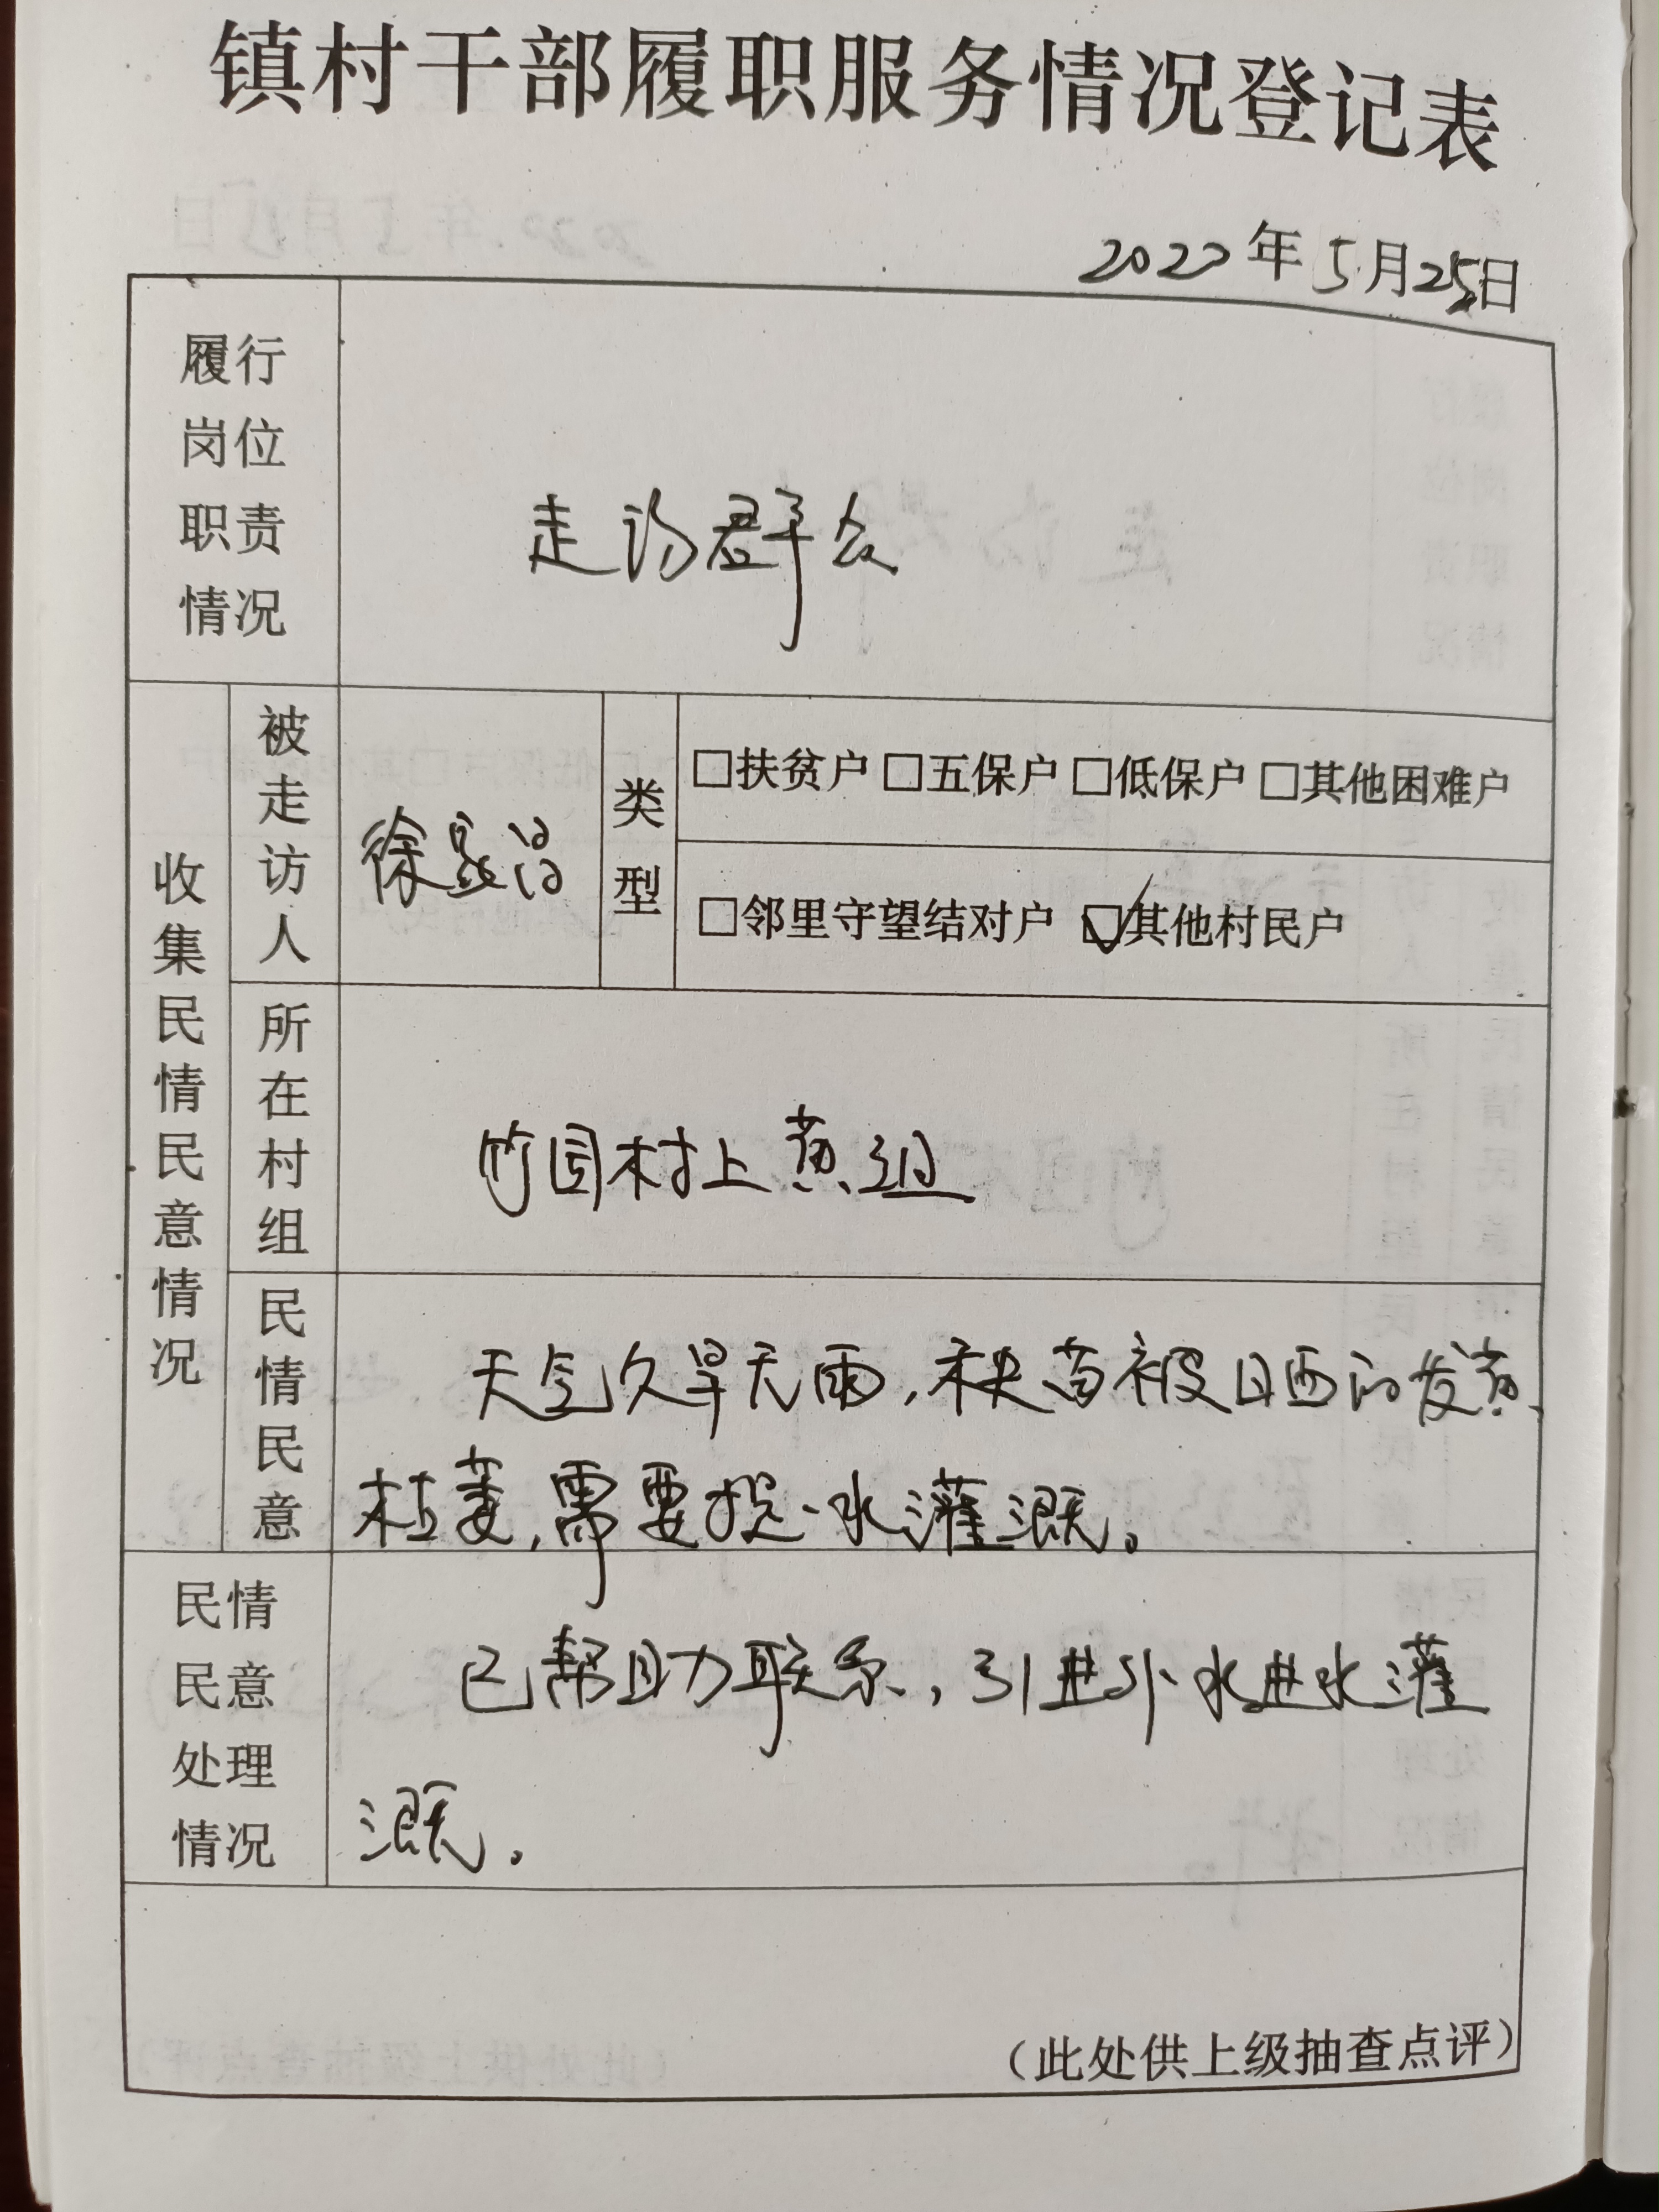 镇村干部履职服务情况登记表
2022年5月25日
履行岗位职责情况
走访群众
收集民情民意情况
被走访人
徐
类型
□扶贫户 □五保户 □低保户 □其他困难户
□邻里守望结对户 ☑其他村民户
所在村组
竹园村上黄组
民情民意
天气久旱无雨,秧苗被日晒的发黄
枯萎,需要提水灌溉。
民情民意处理情况
已帮助联系,引进外水进水灌
溉。
(此处供上级抽查点评)